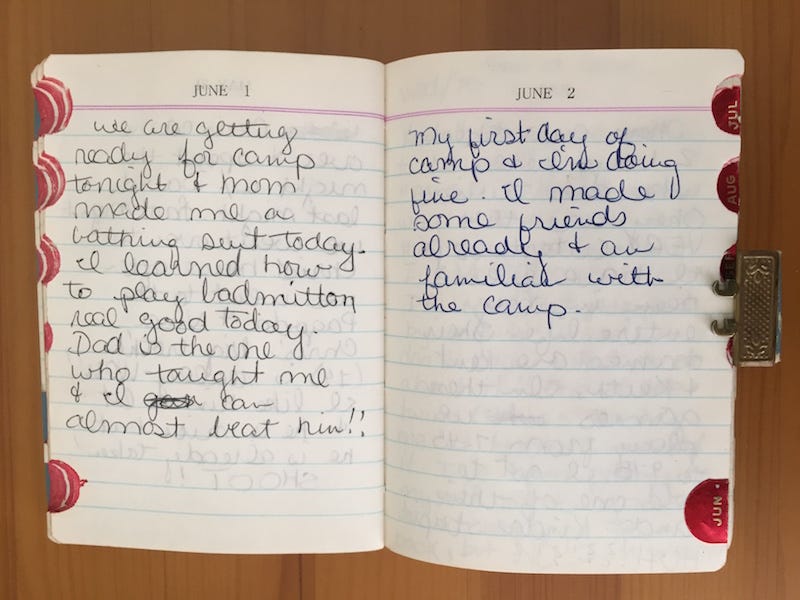 JUNE 1
we are getting
ready for camp
tonight & mom
made me a
bathing suit today.
I learned how
to play badmitton
real good today
Dad is the one
who taught me
& I can
almost beat him!!
JUNE 2
My first day of
camp & I'm doing
fine. I made
some friends
already & am
familiar with
the camp.
JUL
AUG
JUN